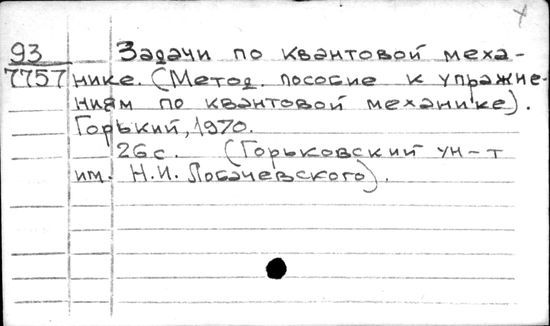 93 Задачи по квантовой меха-
7757 нике. (Метод. пособие к упражне-
ниям по квантовой механике).
Горький, 1970.
26 с. (Горьковский ун-т
им. Н.И. Лобачевского).